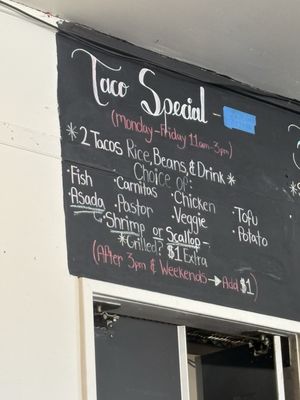 Taco Special -
(Monday-Friday 11am-3pm)
* 2 Tacos Rice, Beans, & Drink *
Choice of:
•Fish •Carnitas •Chicken •Tofu
Asada •Pastor •Veggie •Potato
•Shrimp or Scallop -
*Grilled? $1 Extra
(After 3pm & Weekends → Add $1)